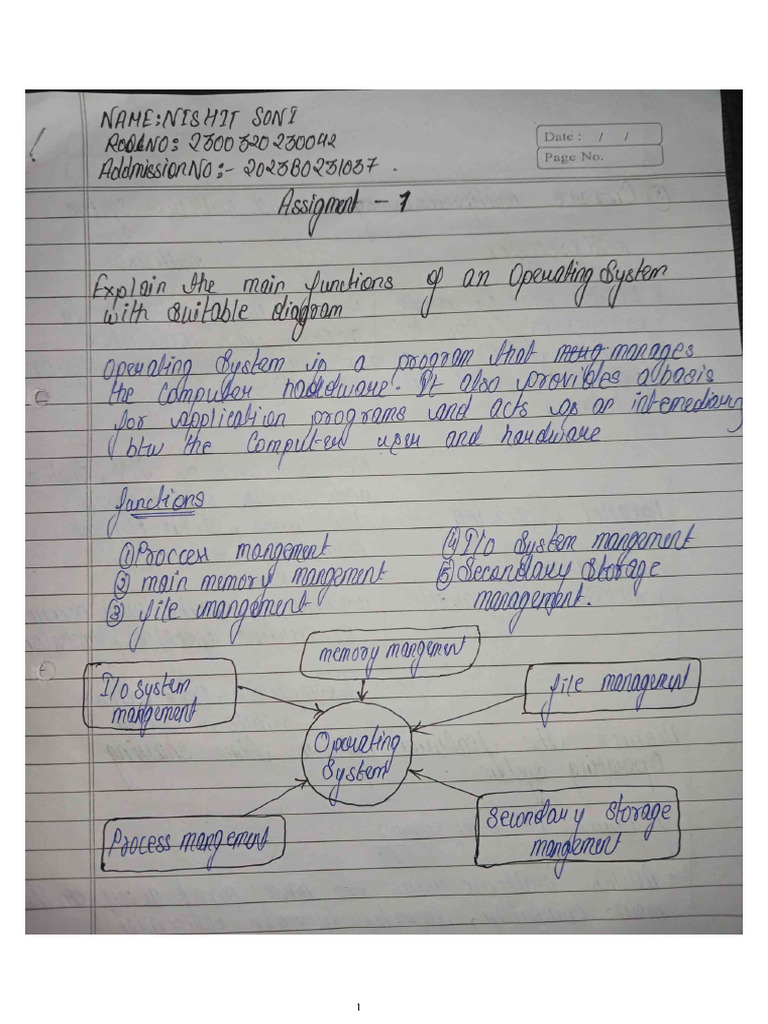 NAME: NISHIT SONI
Roll NO: 2300320230042
Addmission No :- 2023B0231037.
Date : / /
Page No.
Assigment - 1
Explain the main functions of an Operating System
with suitable diagram
Operating System is a program that manages
the Computer haddware. It also provides a basis
for application programs and acts as an intemediary
btw the Computer user and hardware
functions
① Proccess mangement
② main memory mangement
③ file mangement
④ I/o System mangement
⑤ Secondary Storage
management.
memory mangement
I/o System
mangement
file management
Operating
System
Process mangement
Secondary Storage
mangement
1